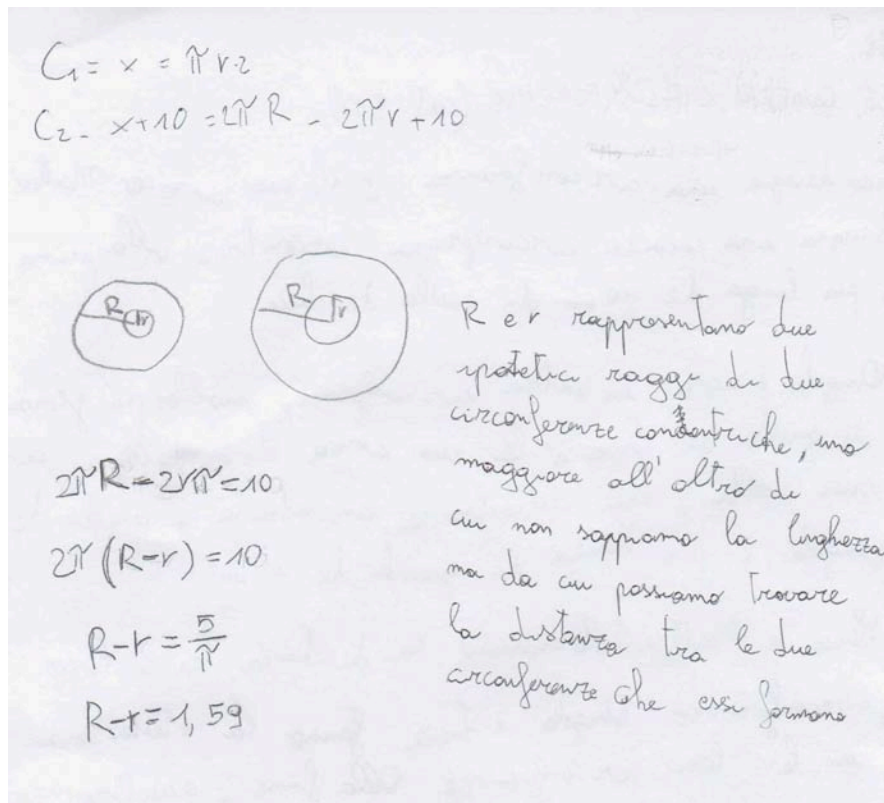 C₁ = x = π r·2
C₂ = x+10 = 2π R = 2π r + 10
R r
R r
2π R - 2rπ = 10
2π (R-r) = 10
R-r = 5/π
R-r = 1,59
R e r rappresentano due
ipotetici raggi di due
circonferenze concentriche, uno
maggiore all'altro di
cui non sappiamo la lunghezza
ma da cui possiamo trovare
la distanza tra le due
circonferenze che essi formano